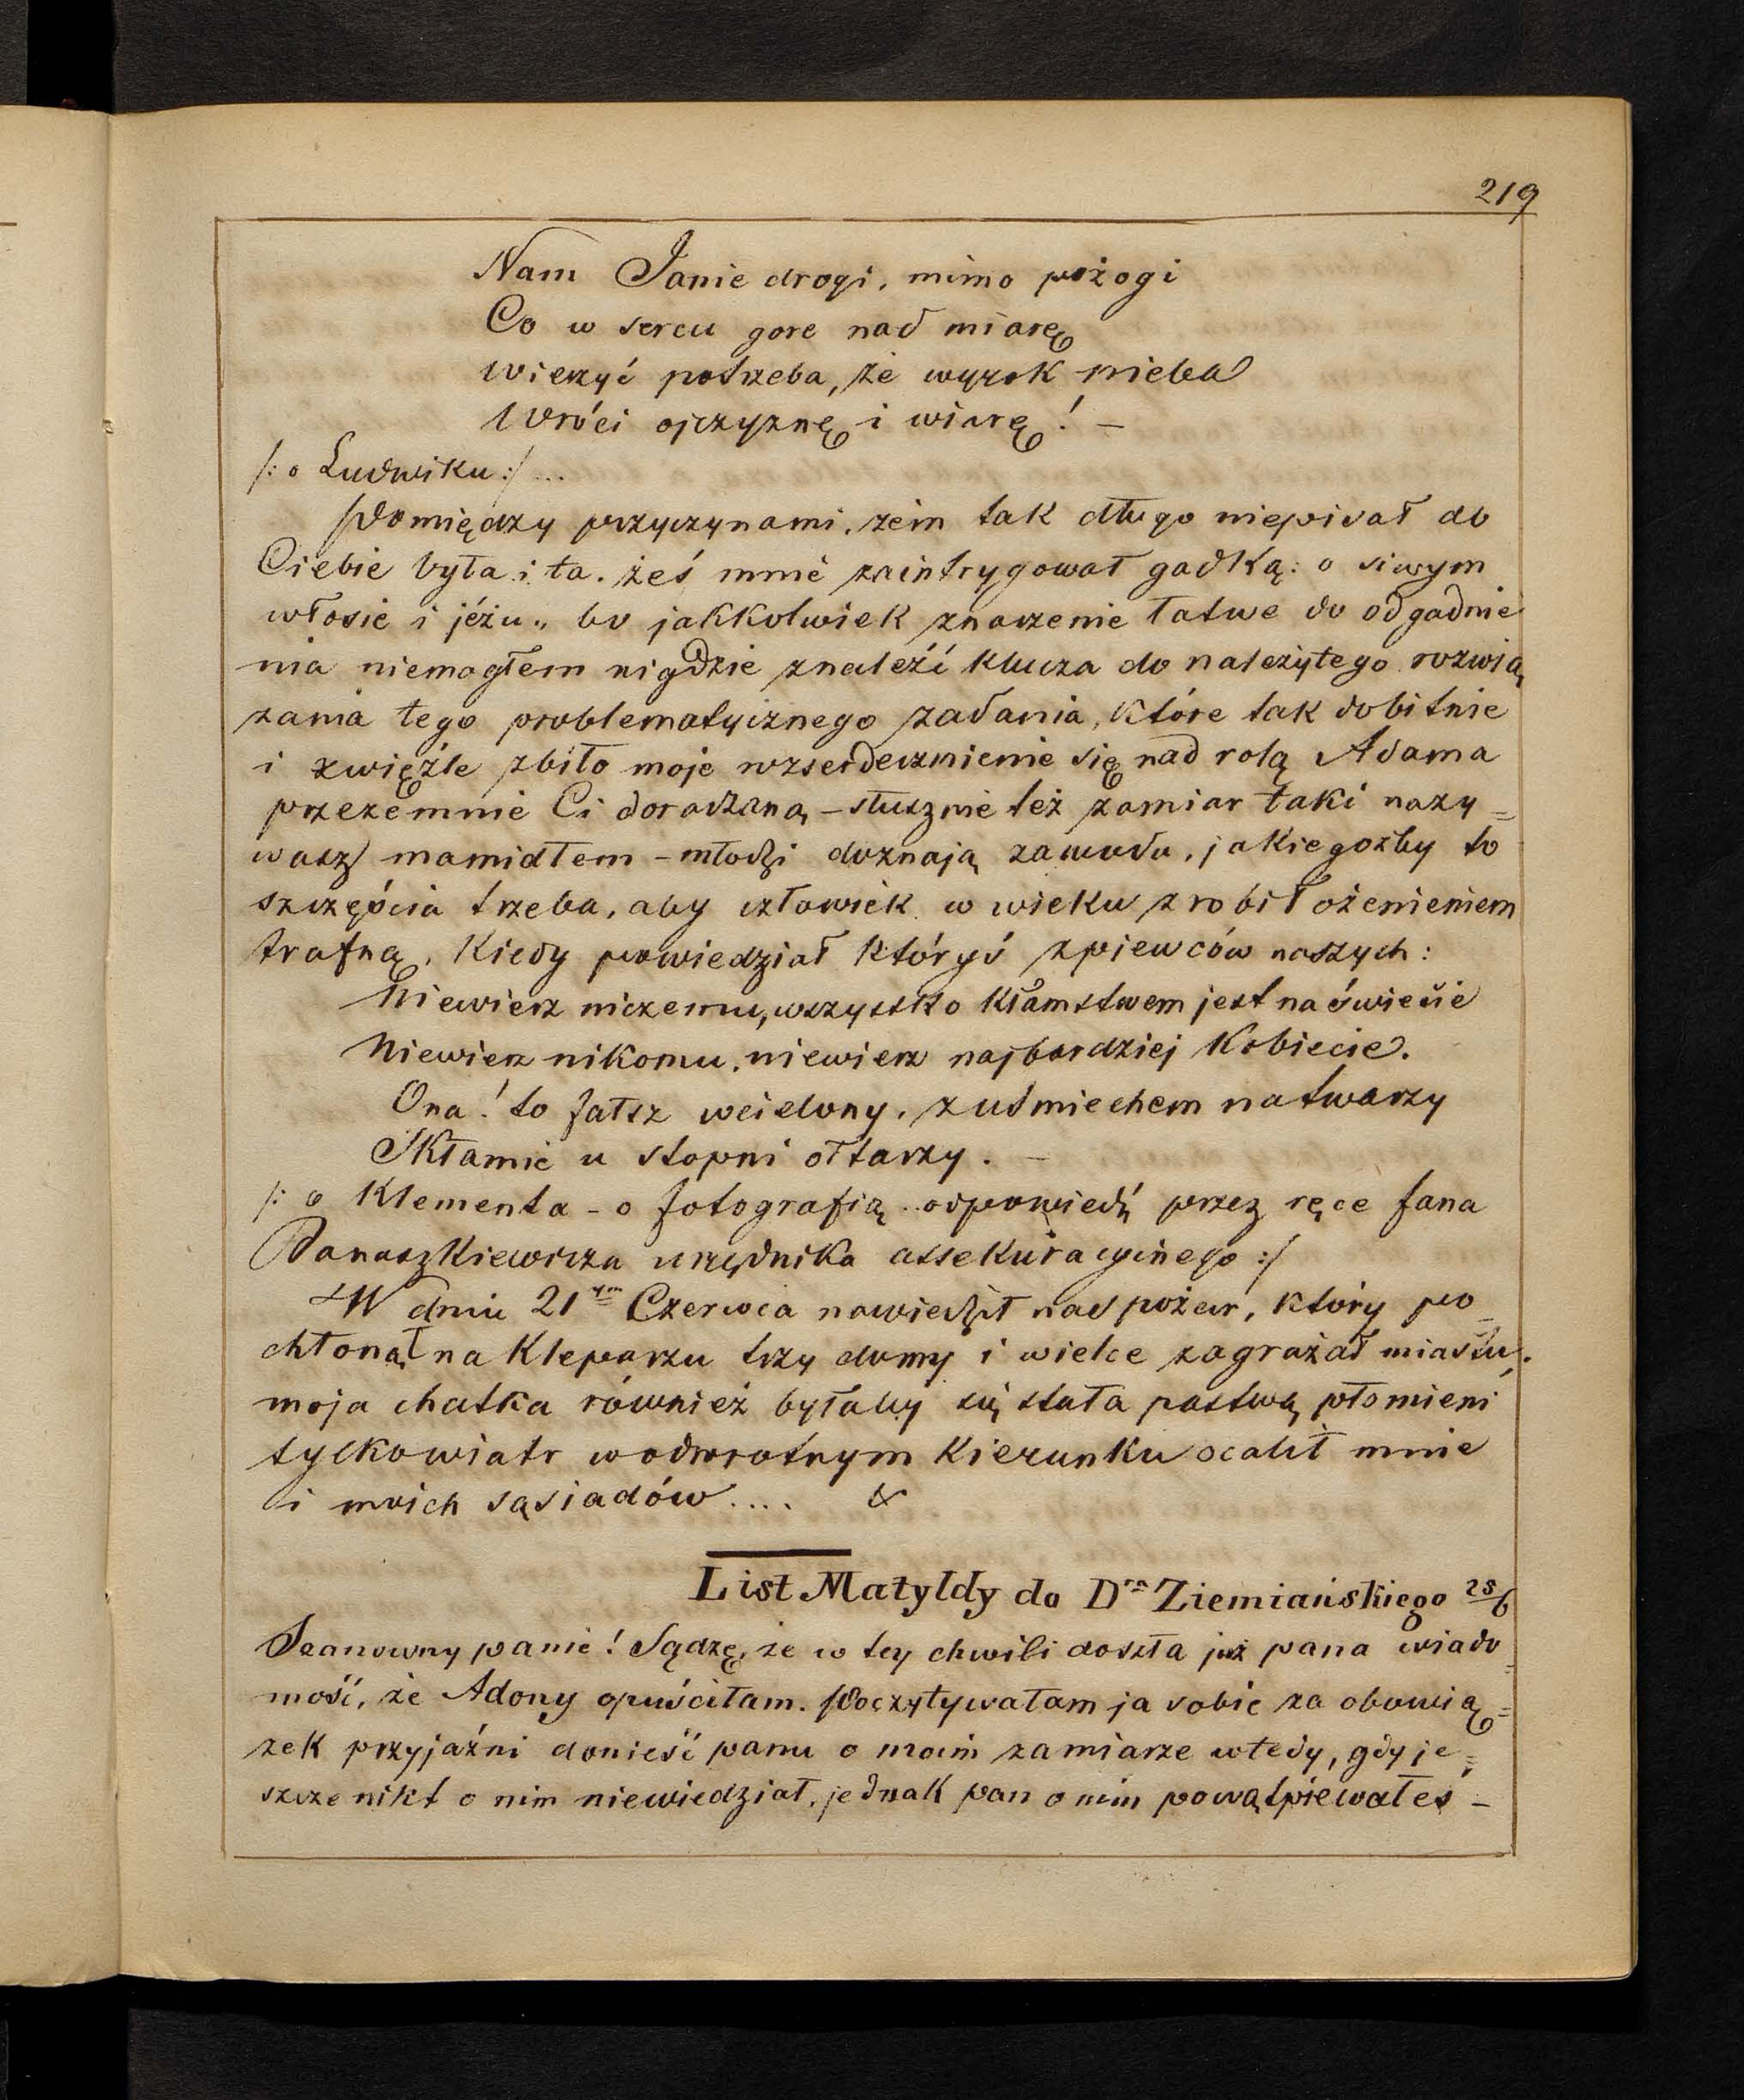 219
Nam Janie drogi, mimo pożogi
Co w sercu gore nad miarę
wierzyć potrzeba, że wyrok nieba
Wróci ojczyznę i wiarę! –
/: o Ludwiku :/ ...
Pomiędzy przyczynami, żem tak długo niepisał do
Ciebie była i ta. żeś mnie zaintrygował gadką: o siwym
włosie i jeżu„ bo jakkolwiek znaczenie łatwe do odgadnie
nia niemogłem nigdzie znaleźć klucza do należytego rozwią
zania tego problematycznego zadania, które tak dobitnie
i zwięźle zbiło moje wzserdecznienie się nad rolą Adama
przezemnie Ci doradzaną – słusznie też zamiar taki nazy=
wasz mamidłem – młodzi doznają zawodu, jakiegożby to
szczęścia trzeba, aby człowiek w wieku zrobił ożenieniem
trafną. Kiedy powiedział któryś śpiewców naszych:
Niewierz niczemu, wszystko kłamstwem jest na świecie
Niewierz nikomu, niewierz najbardziej kobiecie.
Ona! to fałsz wcielony, z uśmiechem na twarzy
Skłamie u stopni ołtarzy. –
/: o Klementa – o fotografią .. odpowiedź przez ręce Jana
Banaszkiewicza urzędnika assekuracyjnego :/
W dniu 21ym Czerwca nawiedził nas pożar, który po=
chłonął na Kleparzu trzy domy i wielce zagrażał miastu.
moja chatka również byłaby się stała pastwą płomieni
tylko wiatr w odwrotnym kierunku ocalił mnie
i moich sąsiadów .... &
List Matyldy do Dra Ziemiańskiego 25/6
Szanowny panie! Sądzę, że w tey chwili doszła już pana wiado=
mość, że Adony opuściłam. Poczytywałam ja sobie za obowią=
zek przyjaźni donieść panu o moim zamiarze wtedy, gdy je=
szcze nikt o nim niewiedział, jednak pan o nim powątpiewałeś –